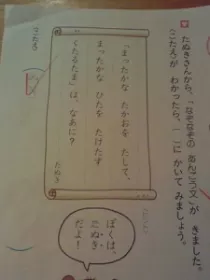 たぬきさんから、「なぞなぞの あんごう文」が きました。
こたえが わかったら、（ ）に かいて みましょう。
「まったかな たかおを たして、
まったかな ひたを たけたす
くたるたま」は、なあに？
たぬき
ぼくは、
たぬき
だよ！